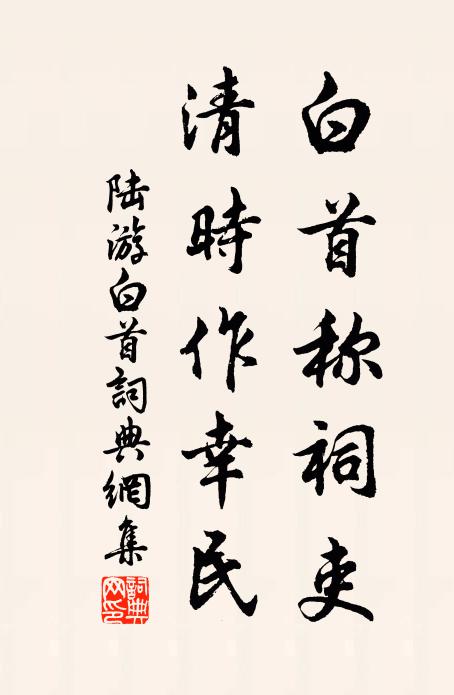 白首称祠吏
清時作幸民
陆游白首詞典網集
詞典网印